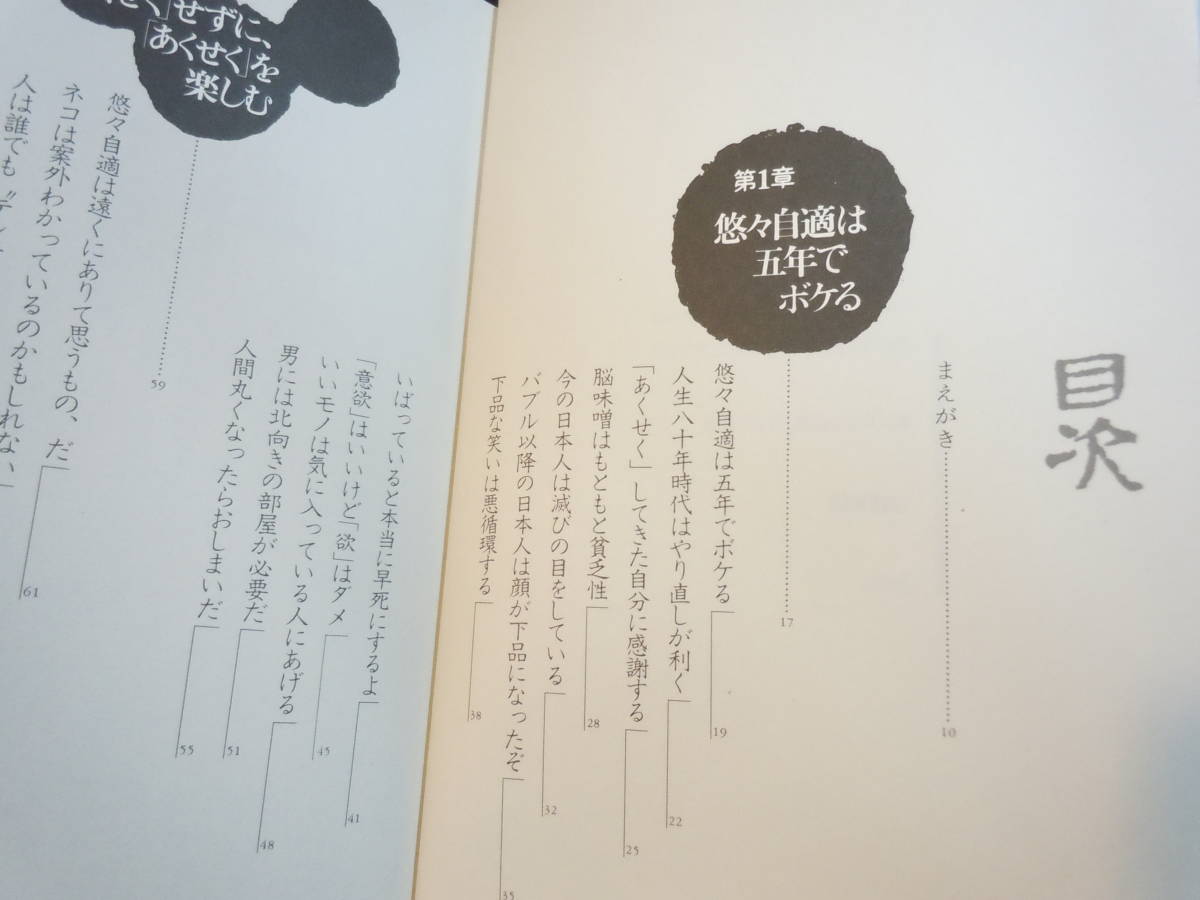 目次
まえがき 10
第1章
悠々自適は
五年で
ボケる
17
悠々自適は五年でボケる 19
人生八十年時代はやり直しが利く 22
「あくせく」してきた自分に感謝する 25
脳味噌はもともと貧乏性 28
今の日本人は滅びの目をしている 32
バブル以降の日本人は顔が下品になったぞ 35
下品な笑いは悪循環する 38
いばっていると本当に早死にするよ 41
「意欲」はいいけど「欲」はダメ 45
いいモノは気に入っている人にあげる 48
男には北向きの部屋が必要だ 51
人間丸くなったらおしまいだ 55
せずに、
「あくせく」を
楽しむ
59
悠々自適は遠くにありて思うもの、だ 61
ネコは案外わかっているのかもしれない
人は誰でも